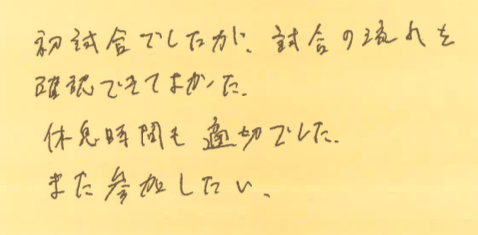 初試合でしたが、試合の流れを
確認できてよかった.
休息時間も適切でした.
また参加したい、